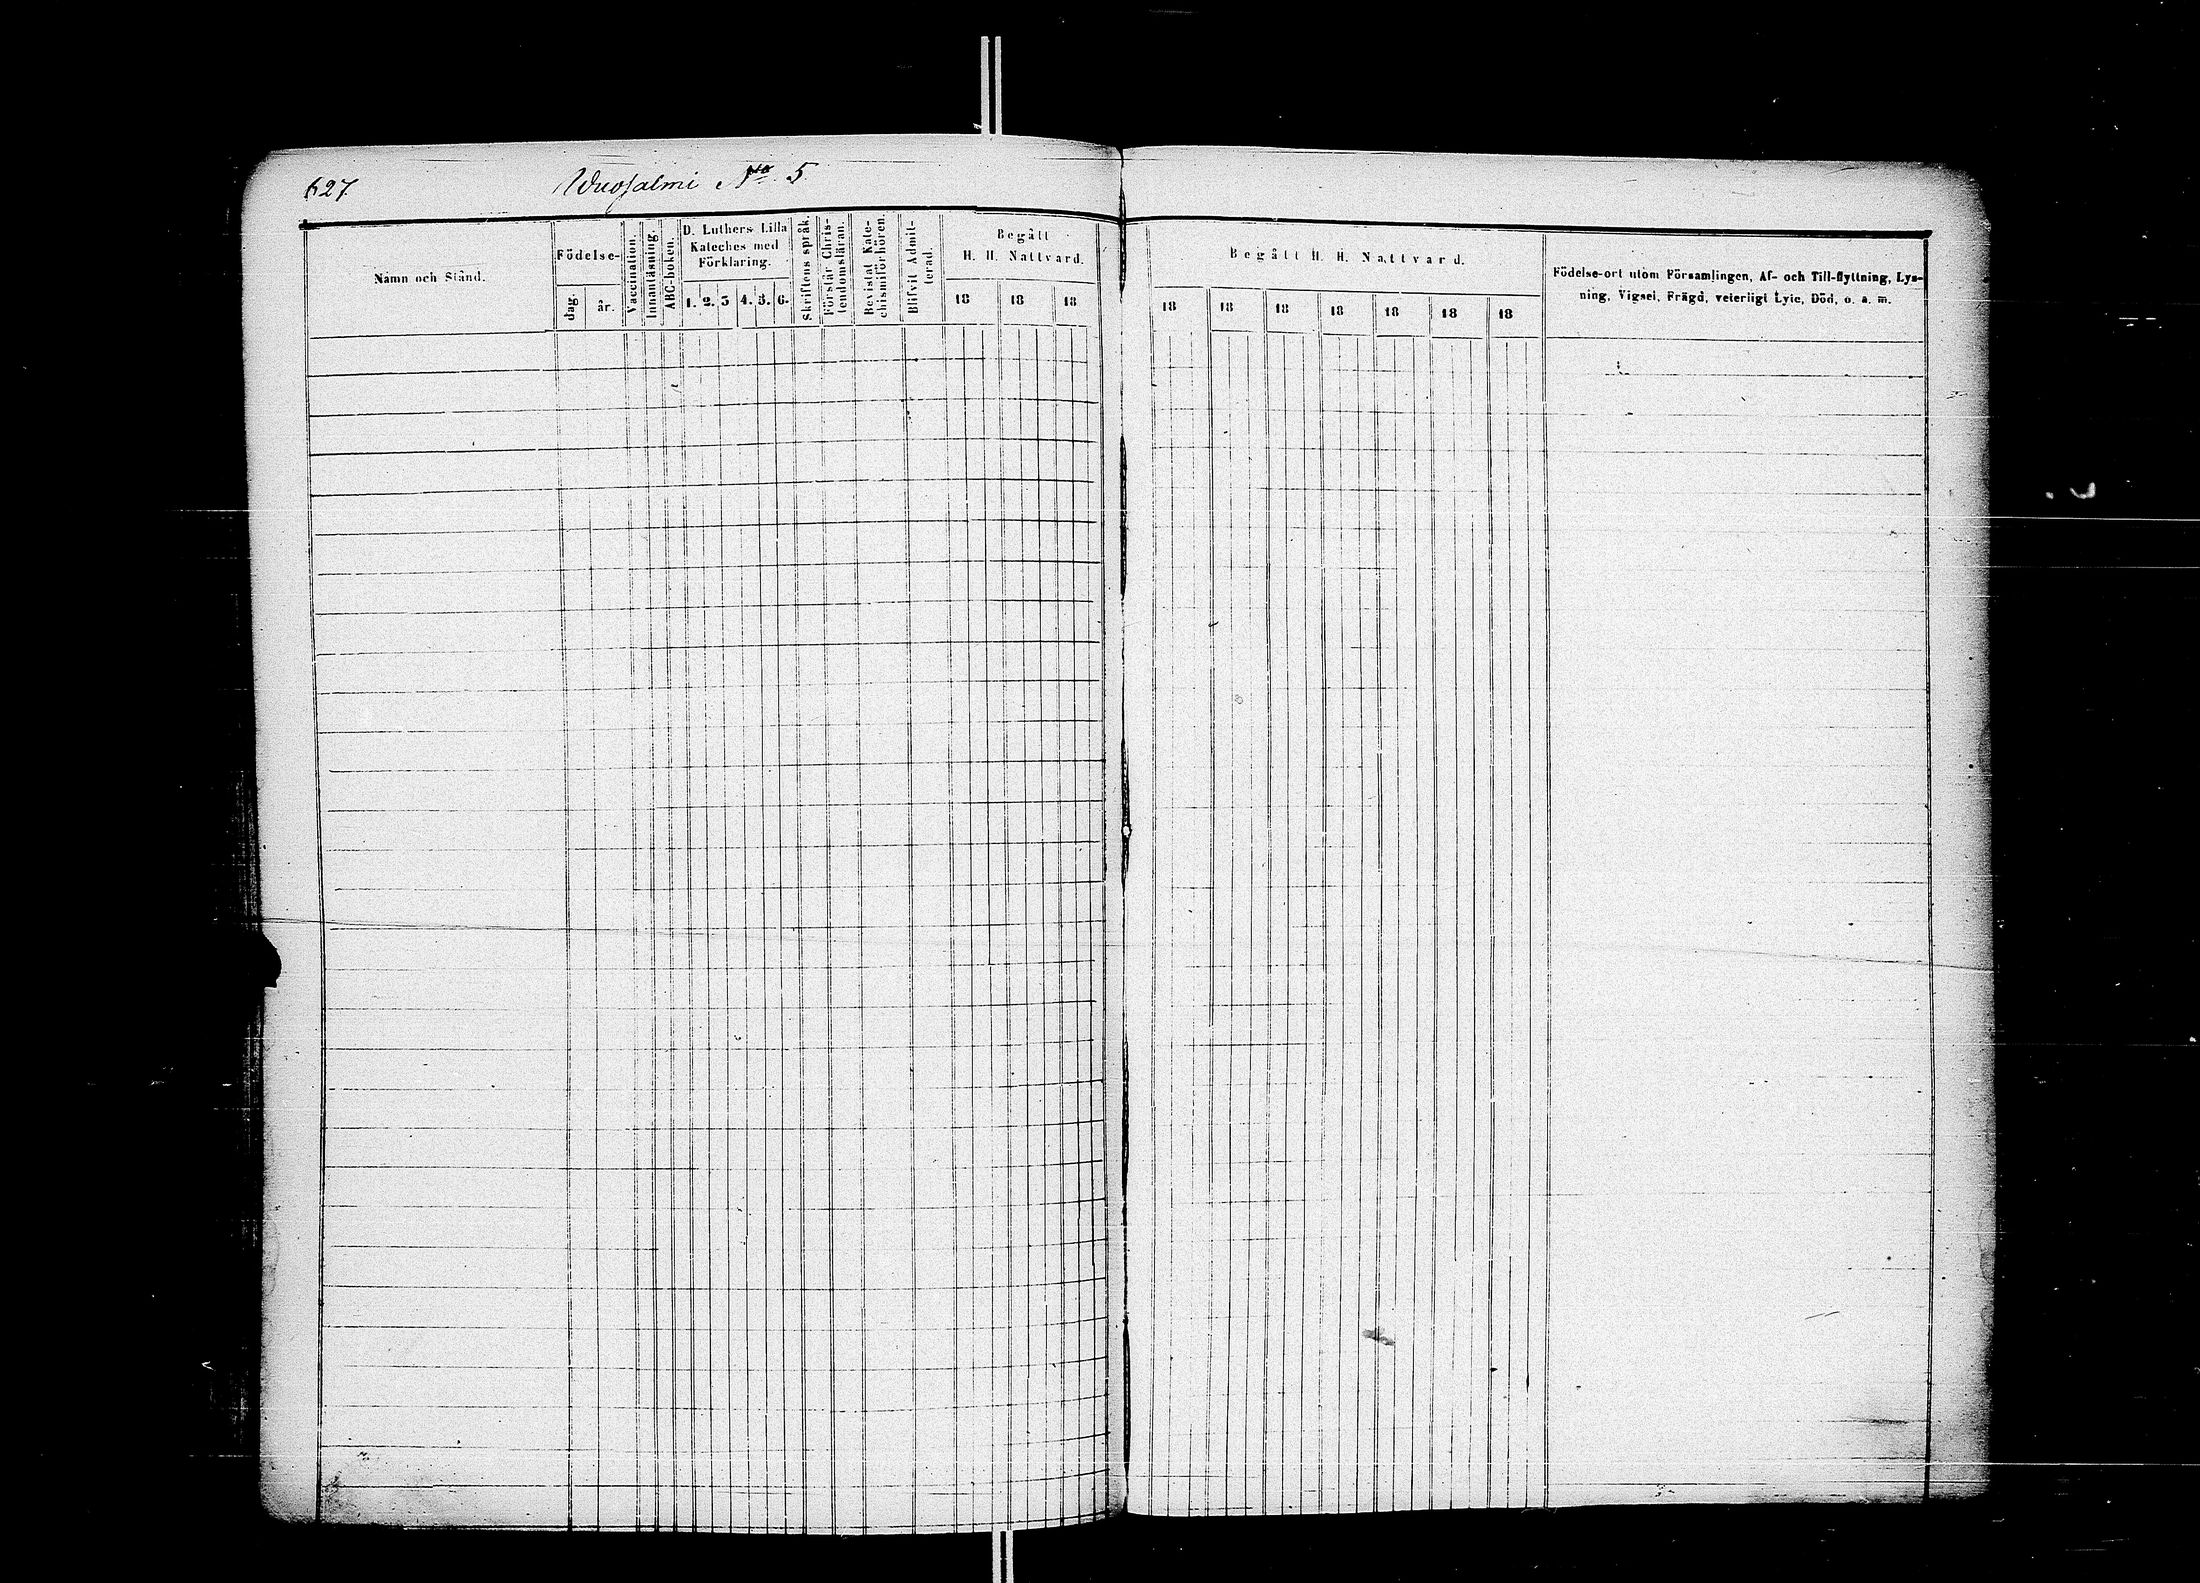 627.
Wuosalmi No. 5
Namn och Stånd.
Födelse-
dag.
år.
Vaccination.
Innanläsning.
ABC-boken.
D. Luthers Lilla
Kateches med
Förklaring.
1. 2. 3 4. 5. 6.
Skriftens språk.
Förstår Chris-
tendomsläran.
Bevistat Kate-
chismiförhören.
Blifvit Admit-
terad.
Begått
H. H. Nattvard.
18 18 18
Begått H. H. Nattvard.
18 18 18 18 18 18 18
Födelse-ort utom Församlingen, Af- och Till-flyttning, Lys-
ning, Vigsel, Frägd, veterligt Lyte, Död, o. a. m.